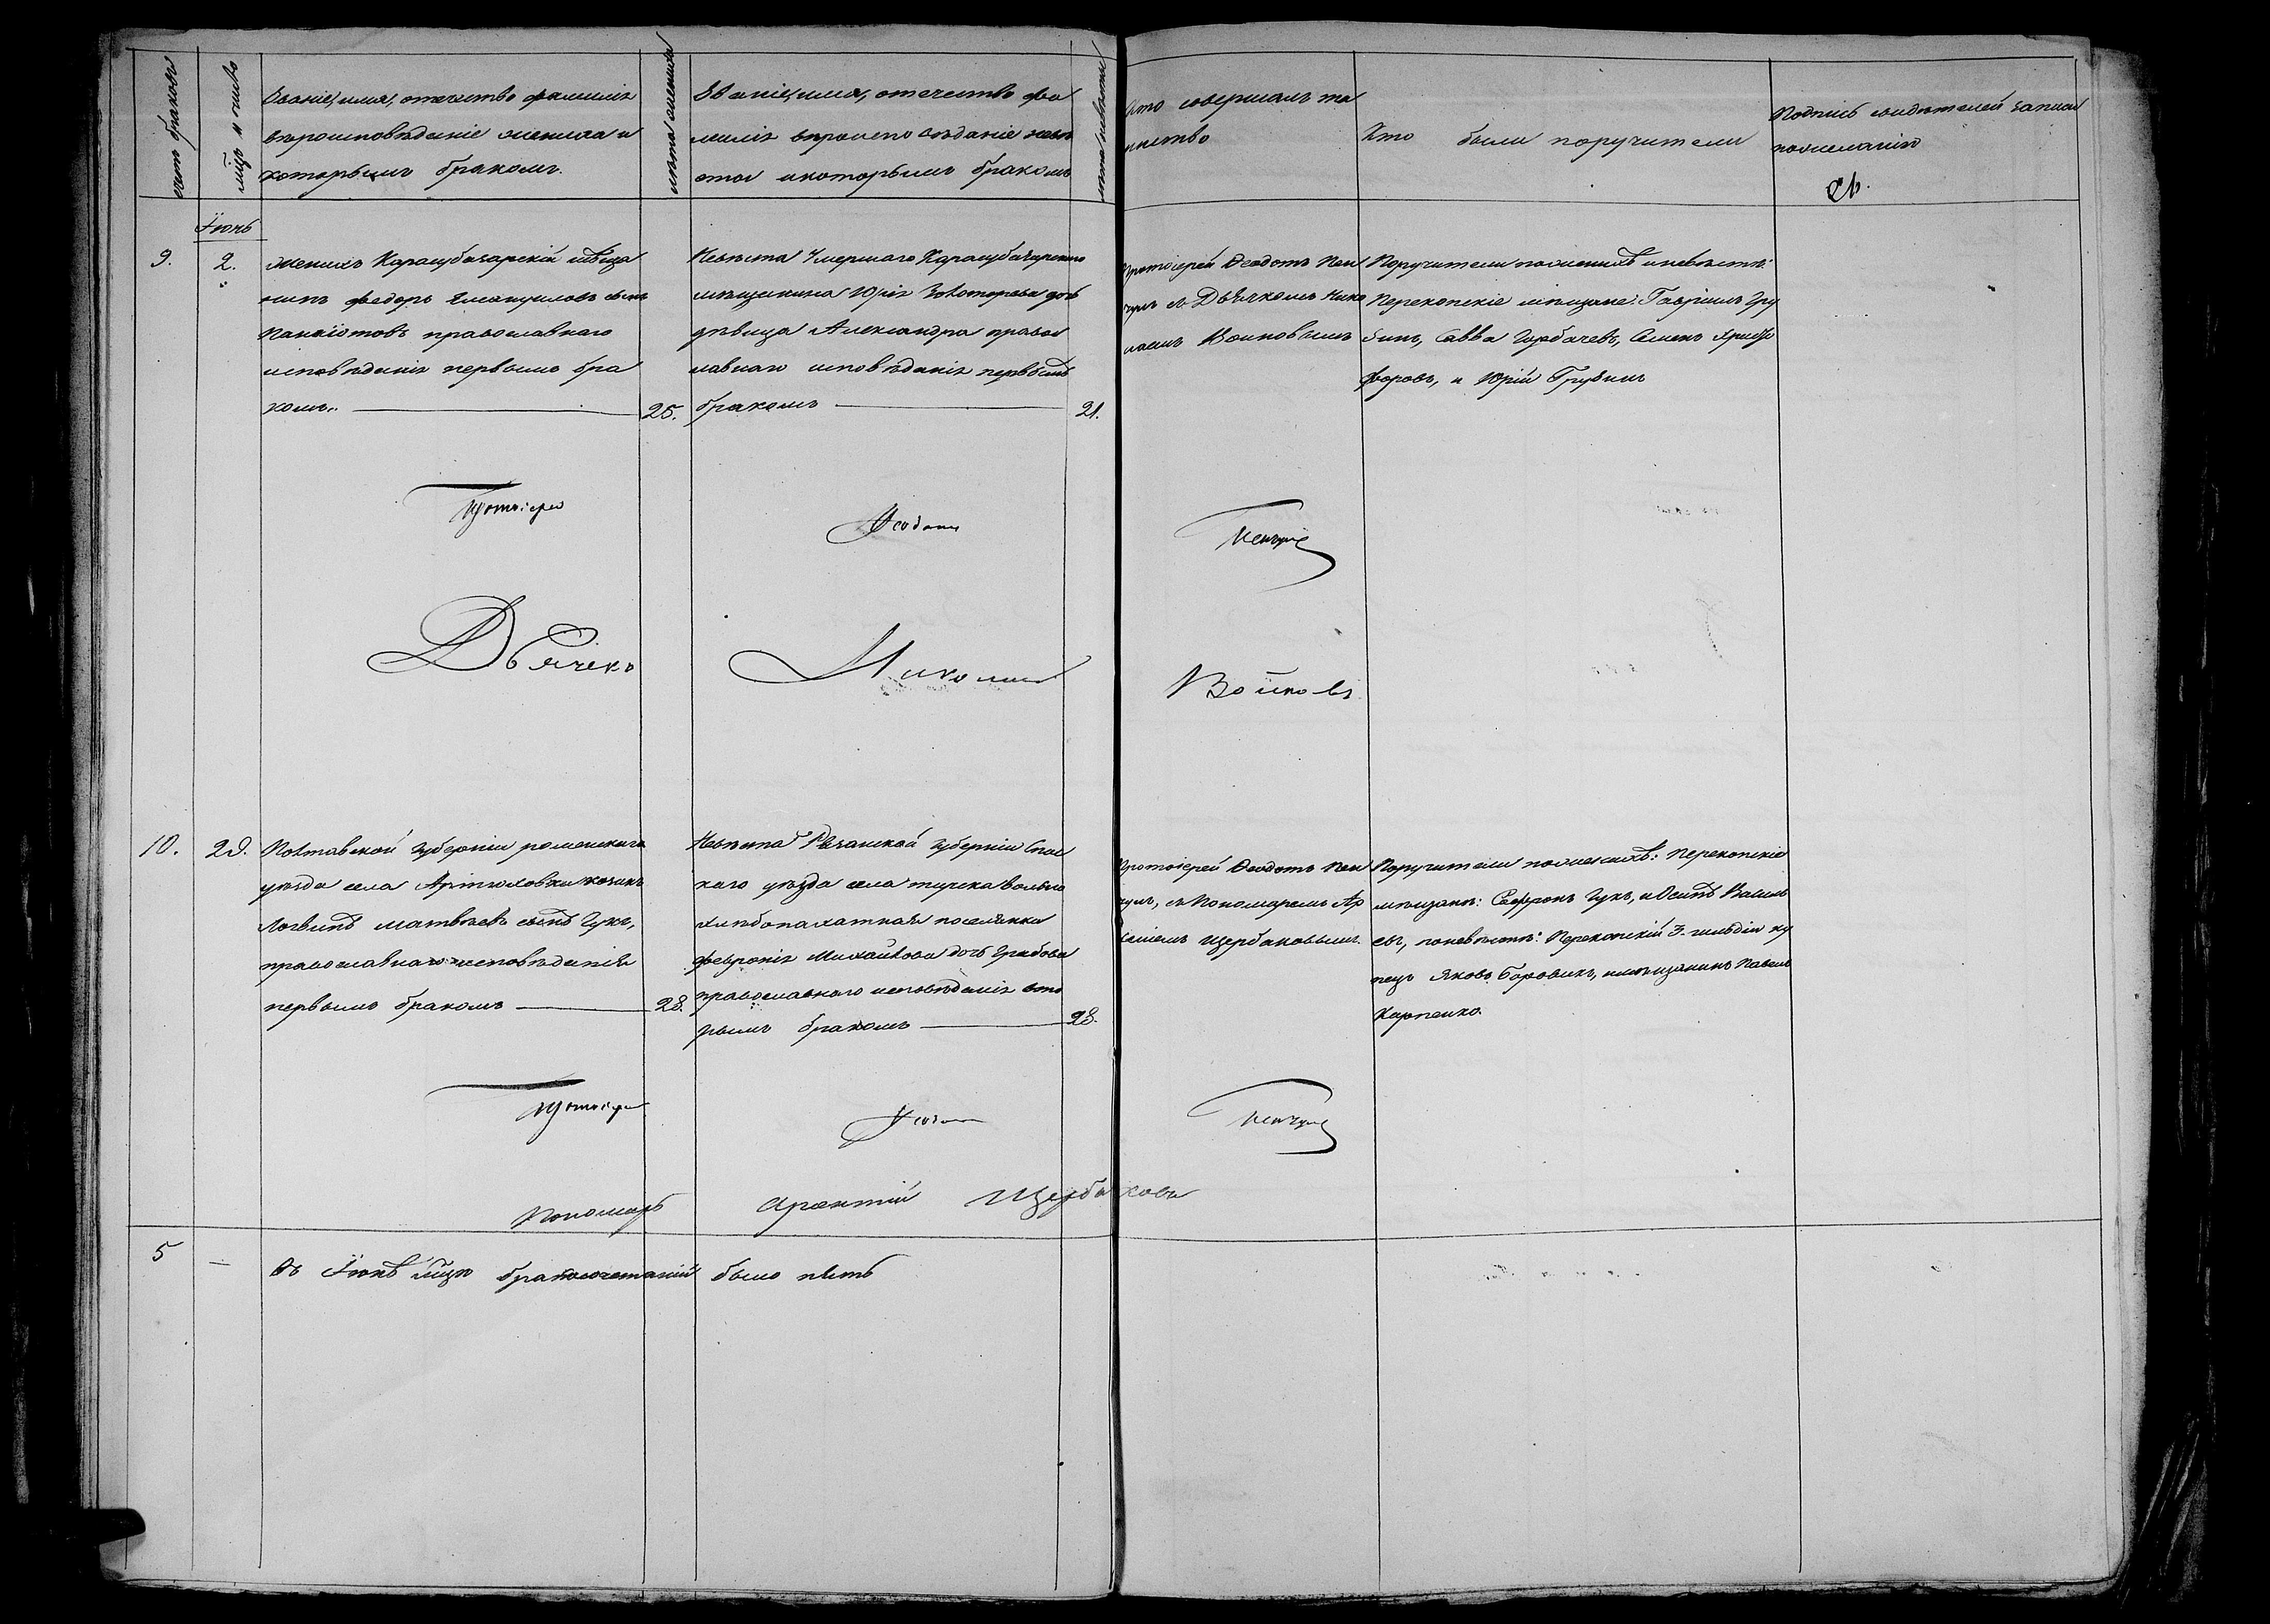 счетъ браковъ
мѣц и число
Званіе, имя, отечество фамилія
вѣроисповѣданіе жениха и
которымъ бракомъ.
лѣта жениха
Званіе, имя, отечество фа
милія вѣроисповѣданіе невѣ
сты и которымъ бракомъ
лѣта невѣсты
Кто совершалъ та
инство
Кто были поручители
Подпись свидѣтелей записи
по желанію
Іюнь
9.
2.
Женихъ Карасубазарскій мѣща
нинъ Федоръ Емануиловъ сынъ
Панаіотовъ православнаго
исповѣданія первымъ бра
комъ.
25.
Невѣста Умершаго Карасубазарскаго
мѣщанина Юрія Золоторева дочь
дѣвица Александра правос
лавнаго исповѣданія первымъ
бракомъ
21.
Протоіерей Ѳеодотъ Пен
чулъ съ Дьячкомъ Нико
лаемъ Воиновымъ
Поручители по женихѣ и невѣстѣ:
Перекопскіе мѣщане: Гавріилъ Гру
бинъ, Савва Горбачевъ, Семенъ Христо
форовъ, и Юрій Грубинъ
Протоіерей Ѳеодотъ Пенчулъ
Дьячекъ Николай Войновъ
10.
29.
Полтавской губерніи роменскаго
уѣзда села Артюховки козакъ
Логвинъ Матвѣевъ сынъ Гукъ,
православнаго исповѣданія
первымъ бракомъ
28.
Невѣста Рязанской губерніи Спас
каго уѣзда села вольно
хлѣбопахатная поселянка
Февронія Михайлова дочь Грибова
православнаго исповѣданія вто
рымъ бракомъ
28.
Протоіерей Ѳеодотъ Пен
чулъ, съ Пономаремъ Ар
сеніемъ Щербаковымъ.
Поручители по женихѣ: Перекопскіе
мѣщане: Сафронъ Гукъ, и Осипъ Василь
евъ, по невѣстѣ: Перекопскій 3. гильдіи ку
пецъ Яковъ Боровикъ, и мѣщанинъ Павелъ
Карпенко.
Протоіерей Ѳеодотъ Пенчулъ
Пономарь Щербаковъ
5
—
Въ Іюнѣ мѣцѣ бракосочетаній было пять